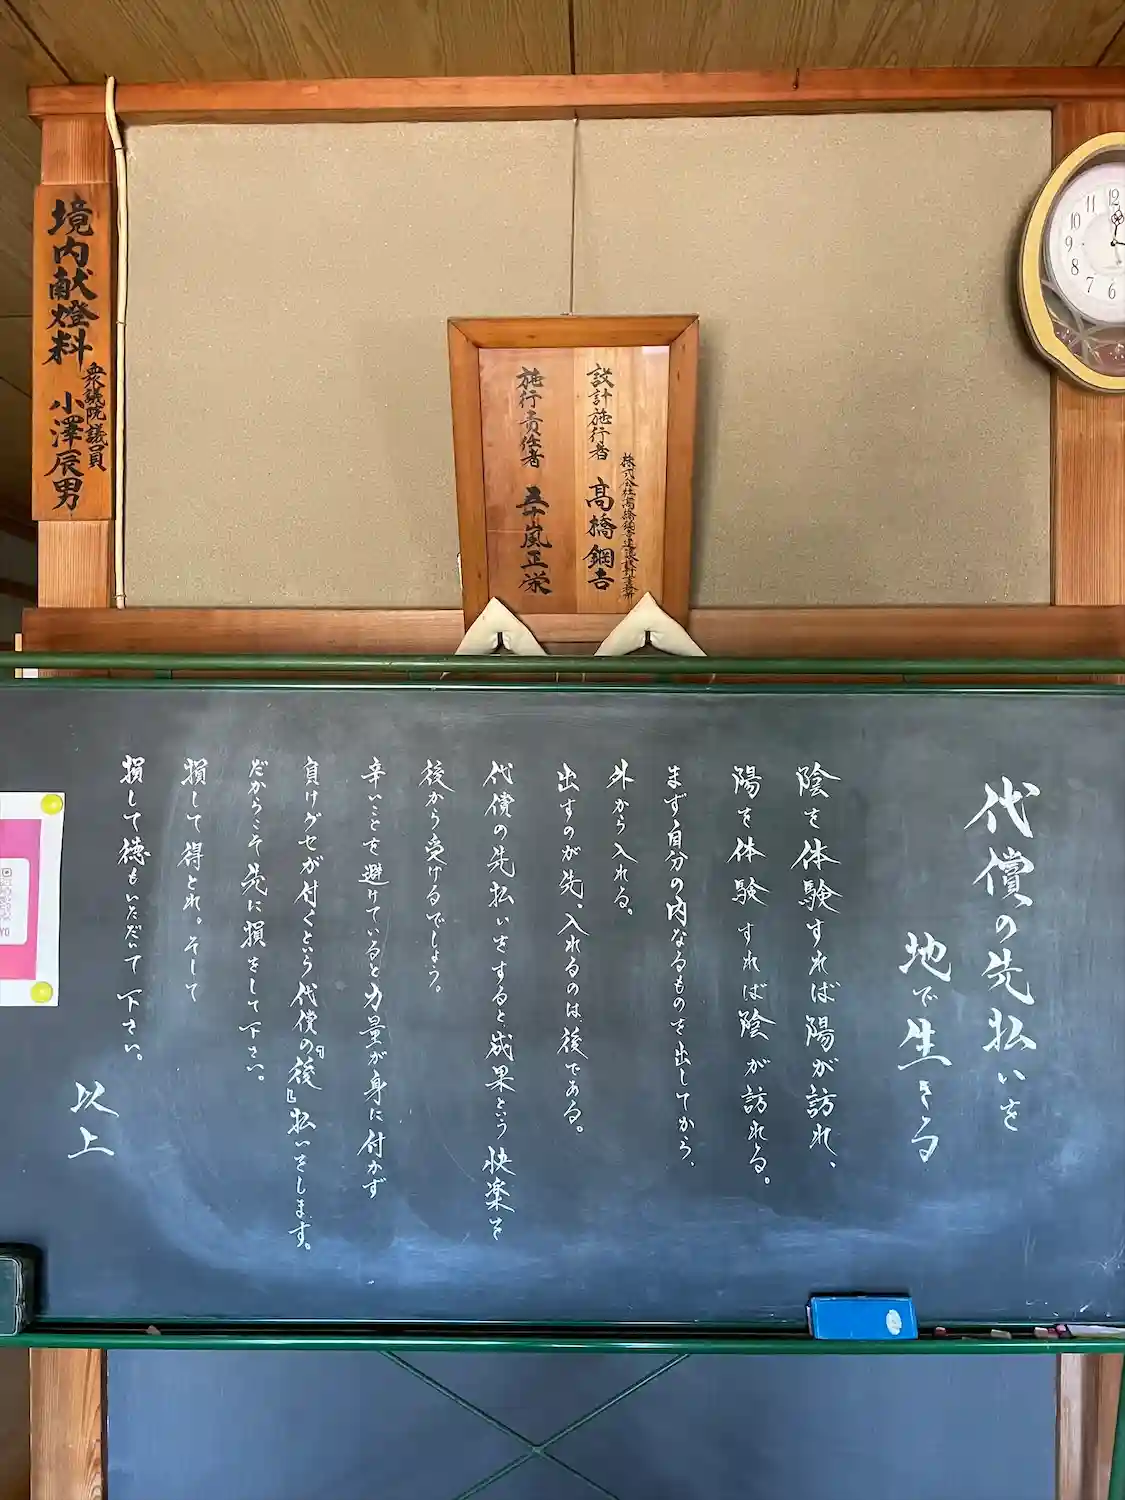 境内献燈料
衆議院議員
小澤辰男
設計施行者
高橋鋼吉
施行責任者
五十嵐正栄
12
11
10
9
8
7
6
代償の先払いを
地で生きる
陰を体験すれば陽が訪れ、
陽を体験すれば陰が訪れる。
まず自分の内なるものを出してから、
外から入れる。
出すのが先、入れるのは後である。
代償の先払いをすると成果という快楽を
後から受けるでしょう。
辛いことを避けていると力量が身に付かず
負けグセが付くという代償の『後』払いをします。
だからこそ先に損をして下さい。
損して得とれ。そして
損して徳もいただいて下さい。
以上